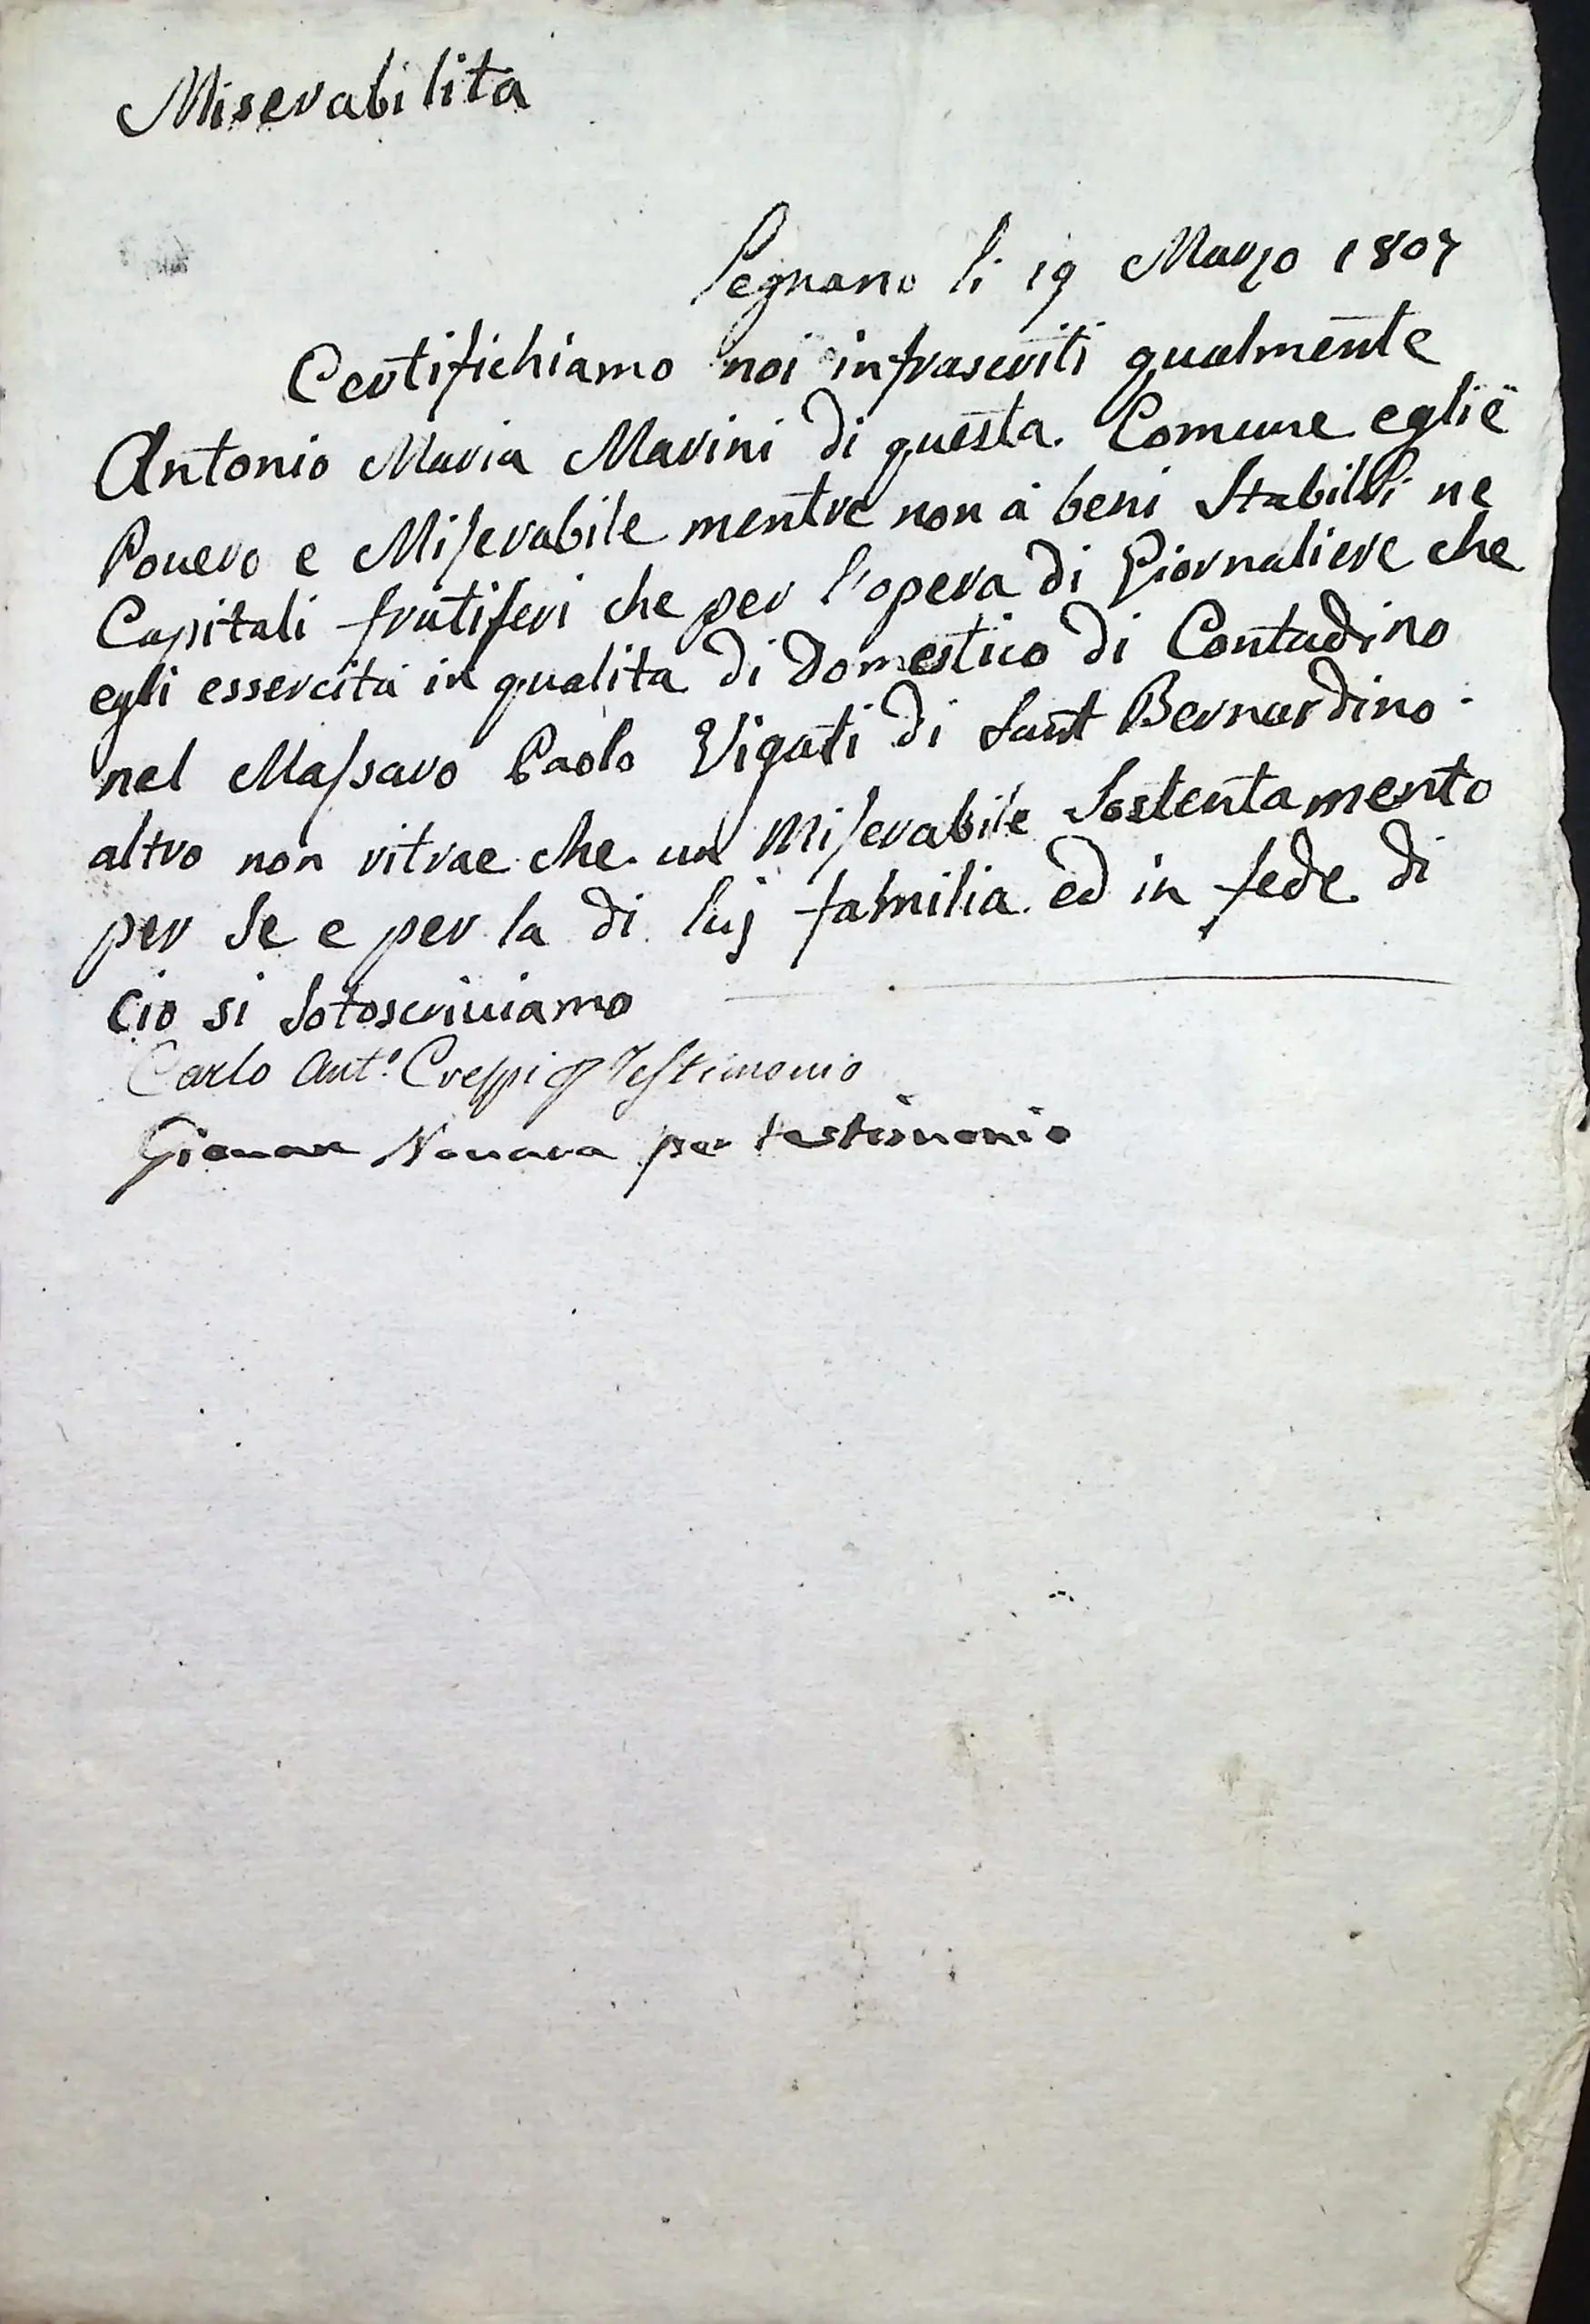 Miserabilita
Legnano li 19 Marzo 1807
Certifichiamo noi infrascriti qualmente
Antonio Maria Marini di questa Comune eglie
Pouero e Miserabile mentre non à beni Stabilli ne
Capitali frutiferi che per l'opera di Giornaliere che
egli essercita in qualita di Domestico di Contadino
nel Massaro Paolo Vigati di Sant Bernardino
altro non ritrae che un Miserabile Sostentamento
per Se e per la di luj familia ed in fede di
Cio si Sotoscriuiamo
Carlo Ant.o Crespi Testimonio
Giouan Nouara per testimonio